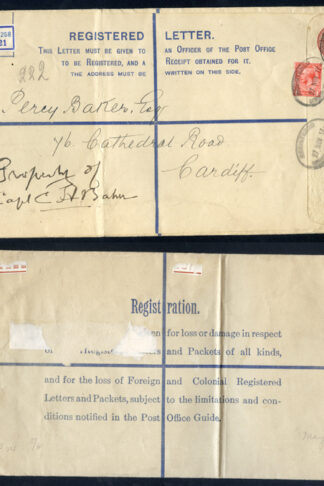 268
21
REGISTERED LETTER.
THIS LETTER MUST BE GIVEN TO AN OFFICER OF THE POST OFFICE
TO BE REGISTERED, AND A RECEIPT OBTAINED FOR IT.
THE ADDRESS MUST BE WRITTEN ON THIS SIDE.
222
Percy Baker, Esq
76 Cathedral Road
Cardiff.
Property of
Capt C
Registration.
for loss or damage in respect
and Packets of all kinds,
and for the loss of Foreign and Colonial Registered
Letters and Packets, subject to the limitations and con-
ditions notified in the Post Office Guide.